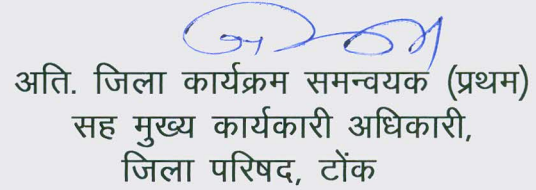 अति. जिला कार्यक्रम समन्वयक (प्रथम)
सह मुख्य कार्यकारी अधिकारी,
जिला परिषद, टोंक